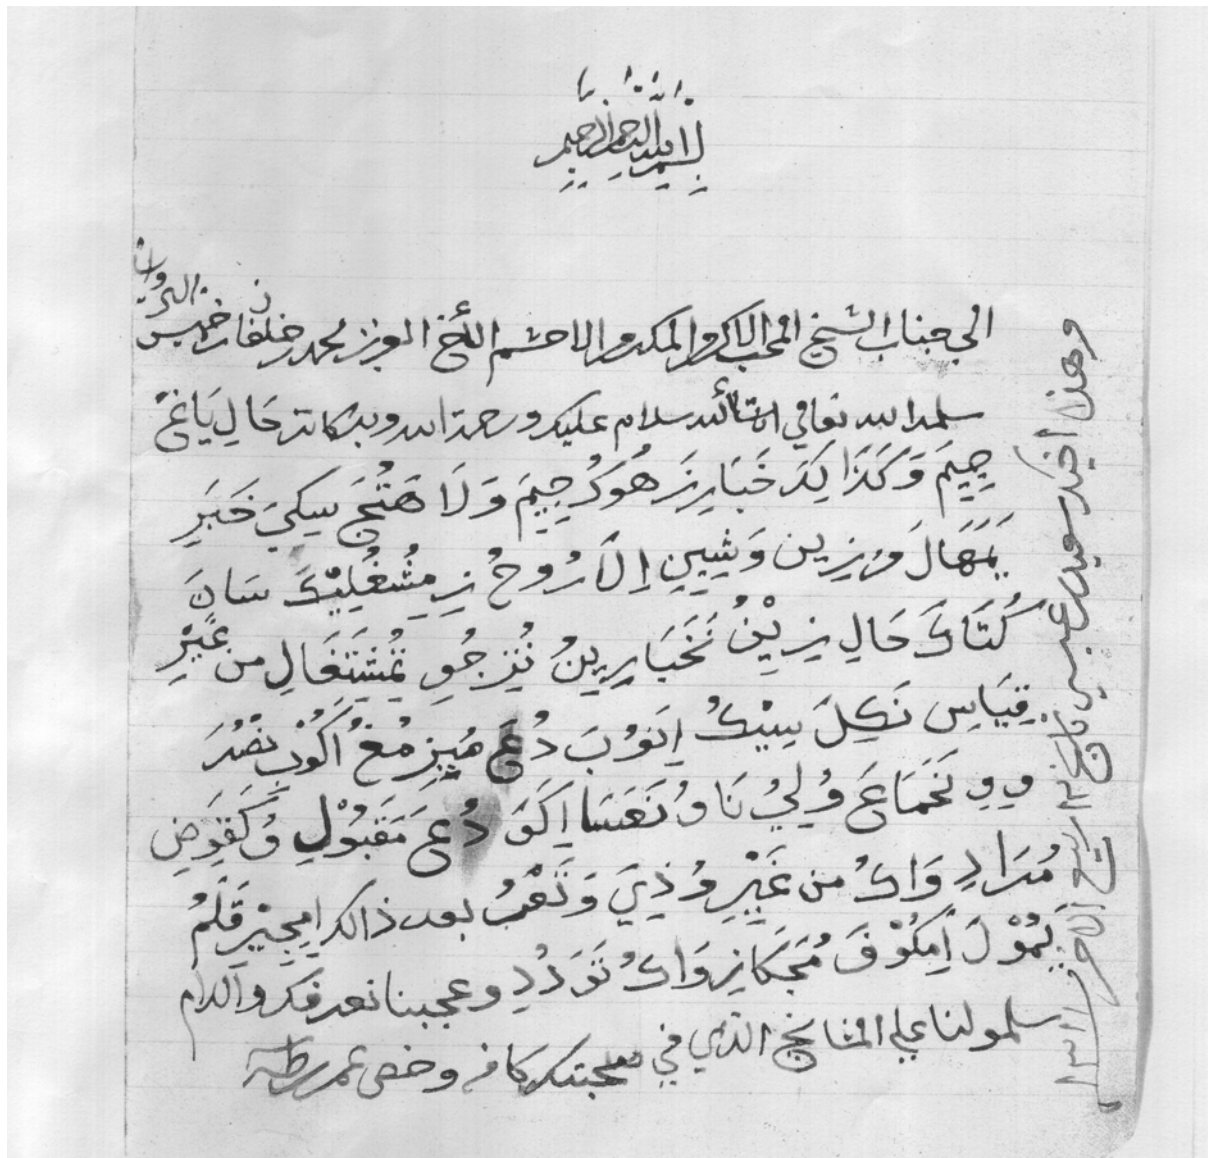 بسم الله الرحمن الرحيم
الى جناب الشيخ المحب الاكرم المكرم الاحشم الأخ العزيز محمد بن خلفان خميس البرواني
سلمه الله تعالى انشأالله سلام عليك ورحمة الله وبركاته حَالِ يَاغُ
جِيِمَ وَكَذَالِكَ خَبَارِزَ هُوكُ جِيِمَ وَلَا هَتُجَ سِكِيَ خَبَرِ
يَمَهَالَ وَزِزِينِ وَثِيِينِ اِلَّا رُوحُ زِمِشُغُلِيْكَ سَانَ
كُتَاكَ حَالِ زِيْنُ نَخَبَارِ زِينُ نُزِجُوِ تُمِشِتَغَالِ مِن غَيْرِ
قِيَاسِ نَكِلَ سِيْكُ اِنَوُبَ دُعَ مِيزِ مُغُ اَكُوْبِ نُصْرَ
وِوِ نَجَمَاعَ وُلِيُ نَاوُ نَعَسَا اِكَوَ دُعَ مَقَبُوْلِ وُكَفَوِضِ
مُرَادِ وَاكُ مِن غَيْرِ وُذِيَ وَتَعْبُ بعد ذالك اِمِجِيْرِ قَلَمُ
يَمُوْلَ اِمِكُوْفَ مُجَكَازِ وَاكُ تَوَدُدِ وعجبنا نعرفك والسلام
سلمو لنا على المشايخ الذي في معجبتك كافه وخص
وهذا اخيك سعيد بن تاريخ ربيع الاخر